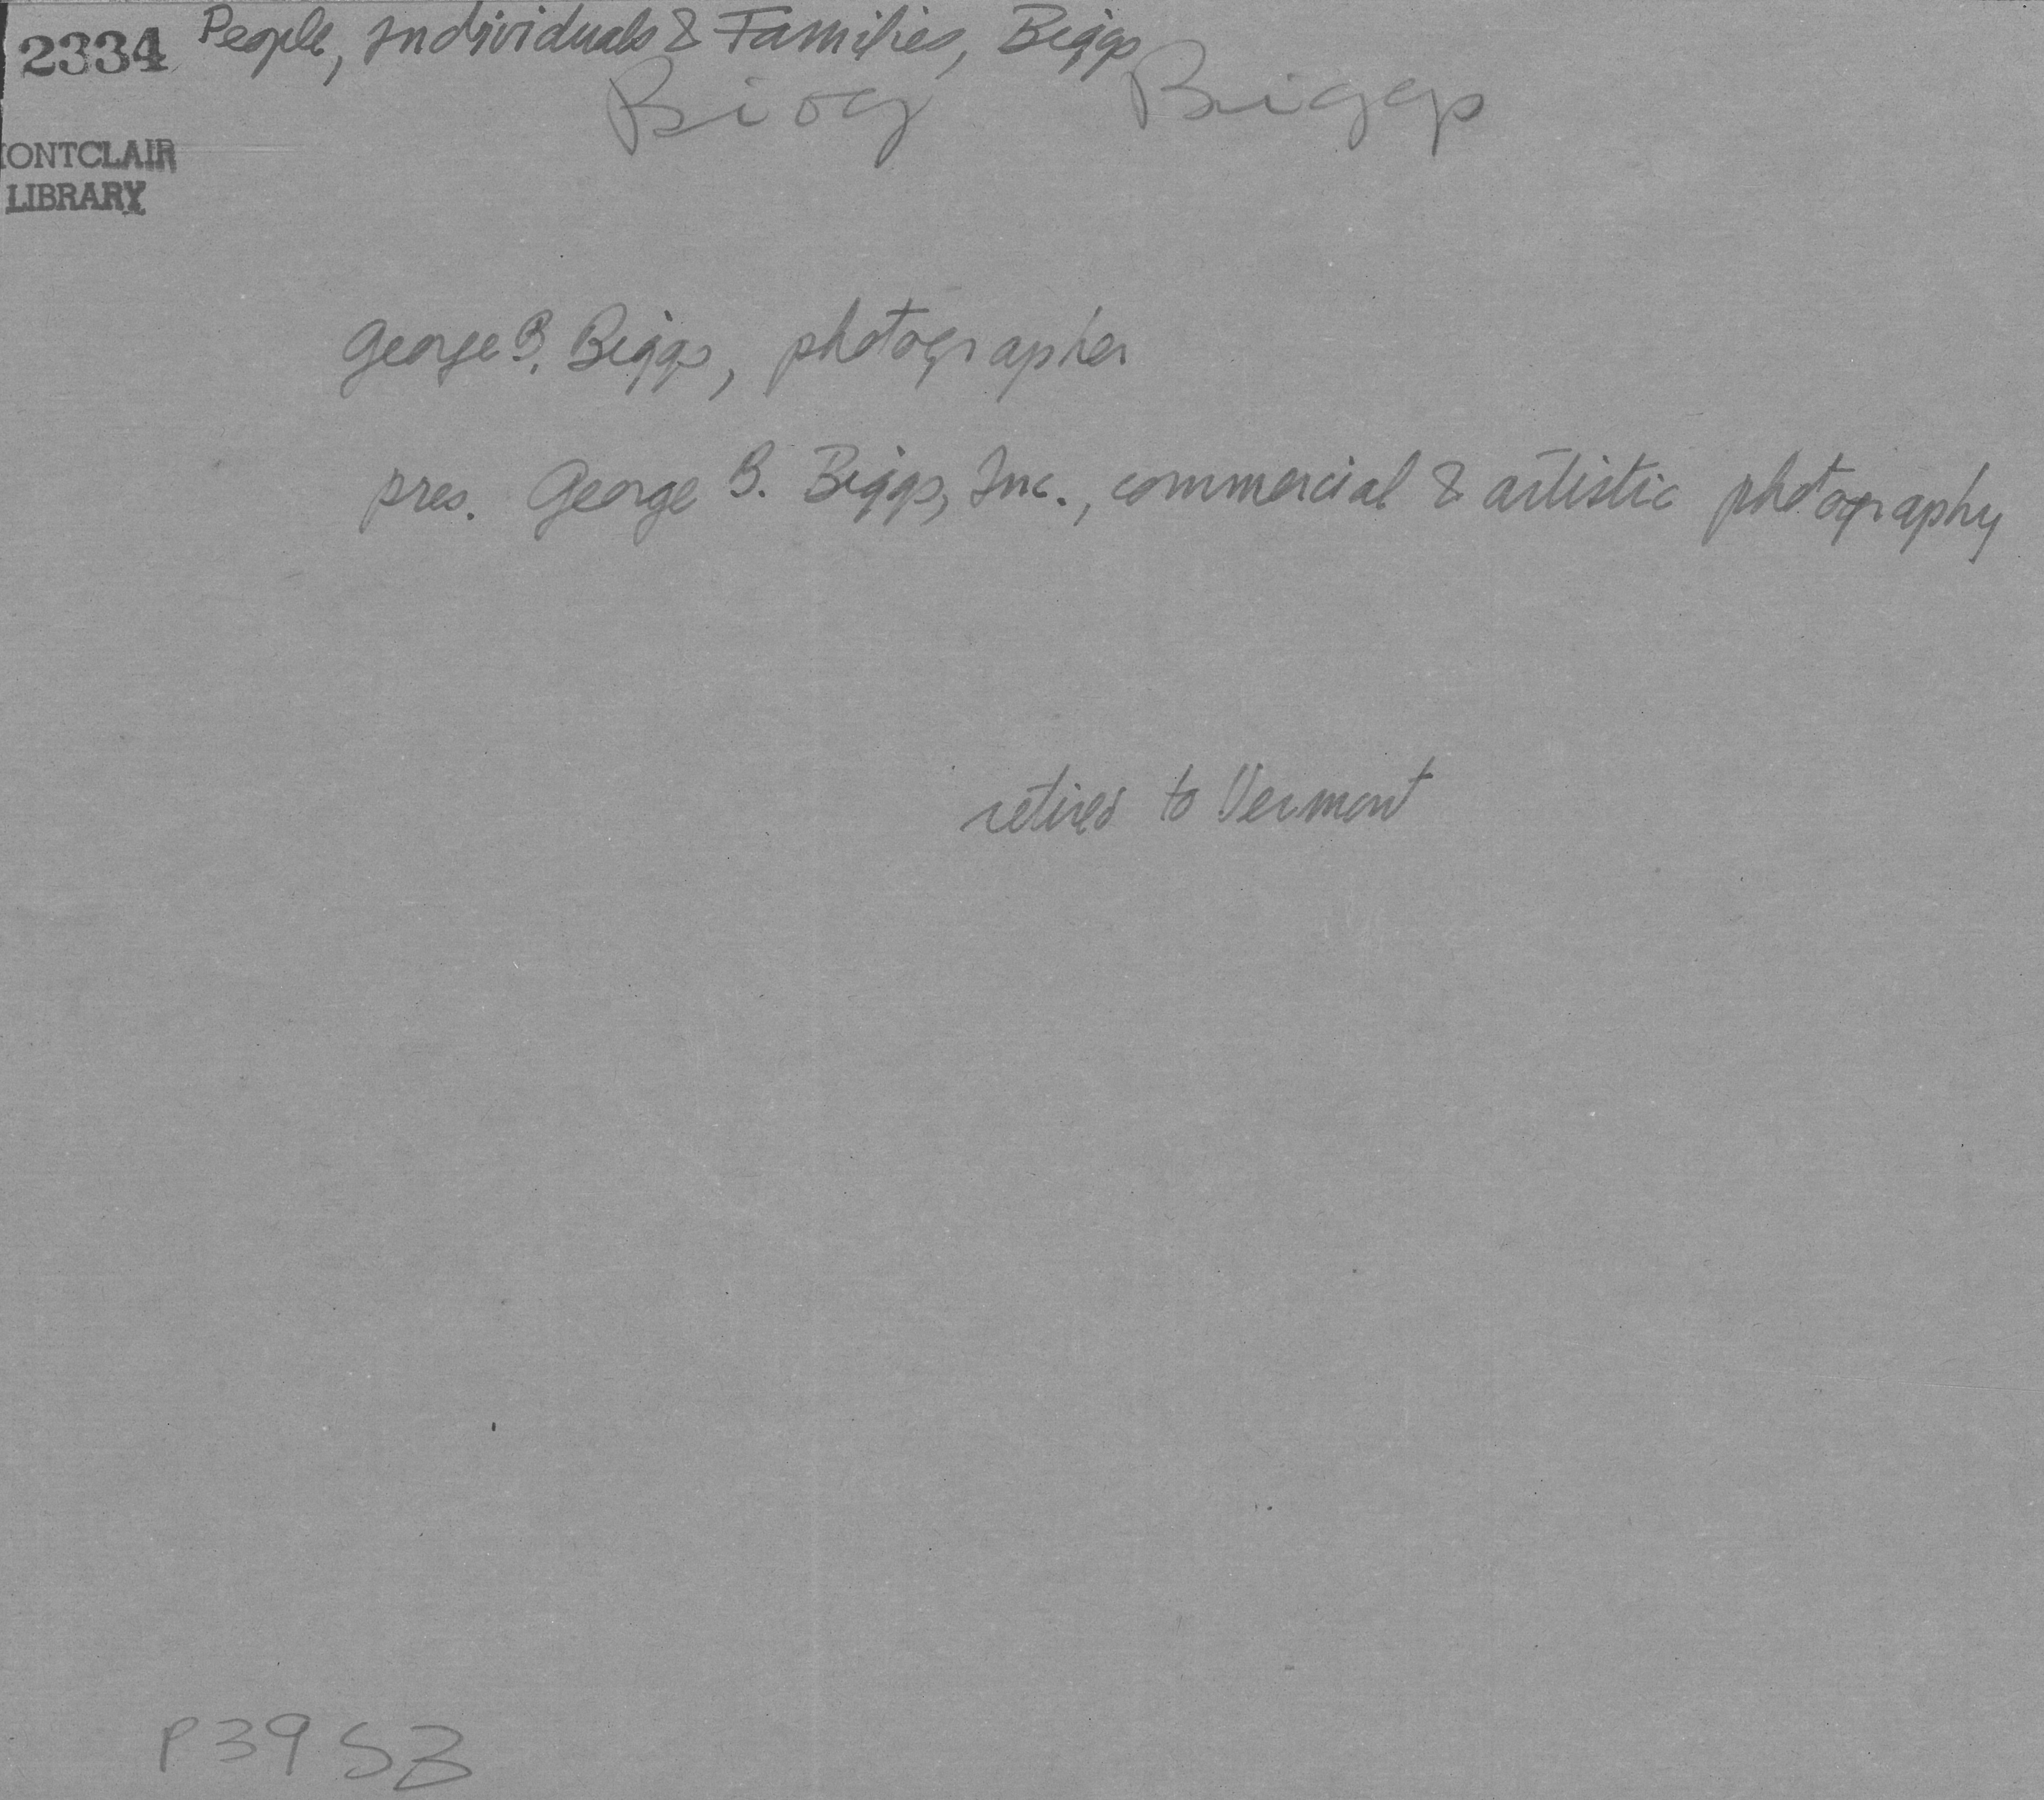 2334 People, Individuals & Families, Biggs
Biog Biggs
ONTCLAIR
LIBRARY
George B. Biggs, photographer
pres. George B. Biggs, Inc., commercial & artistic photography
retires to Vermont
P39 SB